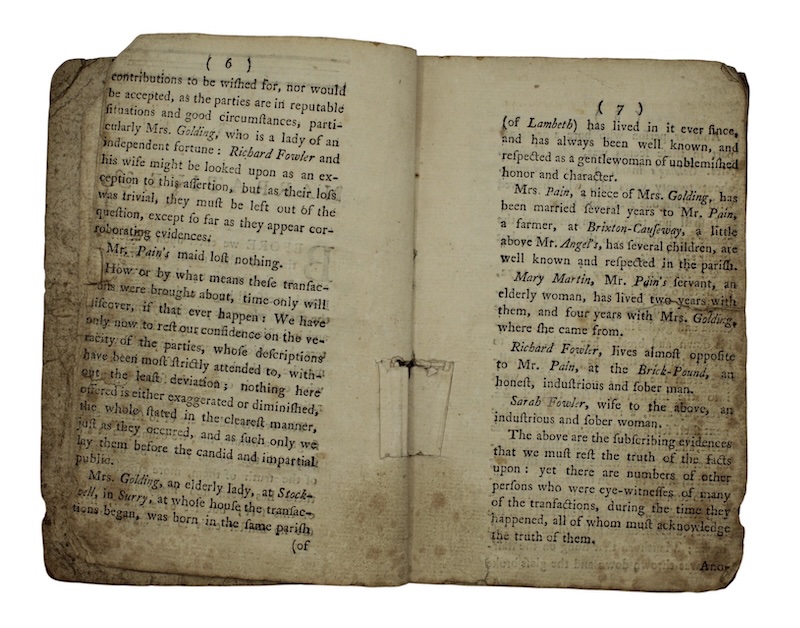 ( 6 )
contributions to be wiſhed for, nor would
be accepted, as the parties are in reputable
ſituations and good circumſtances, parti-
cularly Mrs. Golding, who is a lady of an
independent fortune: Richard Fowler and
his wife might be looked upon as an ex-
ception to this aſſertion, but as their loſs
was trivial, they muſt be left out of the
queſtion, except ſo far as they appear cor-
roborating evidences.
Mr. Pain's maid loſt nothing.
How or by what means theſe tranſac-
tions were brought about, time only will
diſcover, if that ever happen: We have
only now to reſt our confidence on the ve-
racity of the parties, whoſe deſcriptions
have been moſt ſtrictly attended to, with-
out the leaſt deviation; nothing here
offered is either exaggerated or diminiſhed,
the whole ſtated in the cleareſt manner,
juſt as they occured, and as ſuch only we
lay them before the candid and impartial
public.
Mrs. Golding, an elderly lady, at Stock-
well, in Surry, at whoſe houſe the tranſac-
tions began, was born in the ſame pariſh
(of
( 7 )
(of Lambeth) has lived in it ever ſince,
and has always been well known, and
reſpected as a gentlewoman of unblemiſhed
honor and character.
Mrs. Pain, a niece of Mrs. Golding, has
been married ſeveral years to Mr. Pain,
a farmer, at Brixton-Cauſeway, a little
above Mr. Angel's, has ſeveral children, are
well known and reſpected in the pariſh.
Mary Martin, Mr. Pain's ſervant, an
elderly woman, has lived two years with
them, and four years with Mrs. Golding,
where ſhe came from.
Richard Fowler, lives almoſt oppoſite
to Mr. Pain, at the Brick-Pound, an
honeſt, induſtrious and ſober man.
Sarah Fowler, wife to the above, an
induſtrious and ſober woman.
The above are the ſubſcribing evidences
that we muſt reſt the truth of the facts
upon: yet there are numbers of other
perſons who were eye-witneſſes of many
of the tranſactions, during the time they
happened, all of whom muſt acknowledge
the truth of them.
Ano-